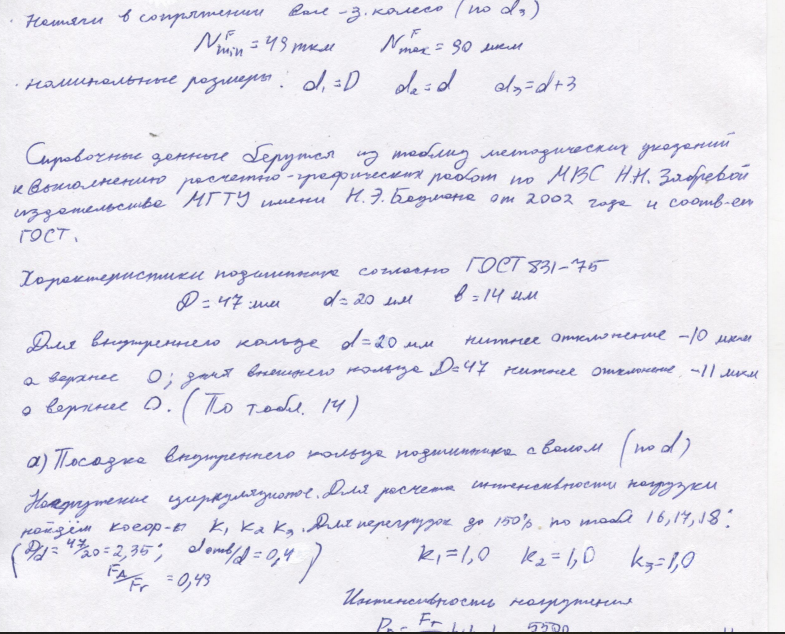 · Натяги в сопряжении вал – з. колесо (по d₃)
N^F_min = 49 мкм   N^F_max = 90 мкм
· номинальные размеры:   d₁=D   d₂=d   d₃=d+3
Справочные данные берутся из таблиц методических указаний
к выполнению расчетно-графических работ по МВС Н.Н. Зябревой
издательства МГТУ имени Н.Э. Баумана от 2002 года и соотв-ет
ГОСТ.
Характеристики подшипника согласно ГОСТ 831-75
D = 47 мм   d = 20 мм   b = 14 мм
Для внутреннего кольца d=20 мм нижнее отклонение -10 мкм
а верхнее 0; для внешнего кольца D=47 нижнее отклонение -11 мкм
а верхнее 0. (По табл. 14)
а) Посадка внутреннего кольца подшипника с валом (по d)
Нагружение циркуляционное. Для расчета интенсивности нагрузки
найдём коэф-ы k₁ k₂ k₃. Для перегрузок до 150% по табл 16,17,18:
(D/d = 47/20 = 2,35; d отв/d = 0,4)   k₁=1,0   k₂=1,0   k₃=1,0
F_A/F_r = 0,43
Интенсивность нагружения